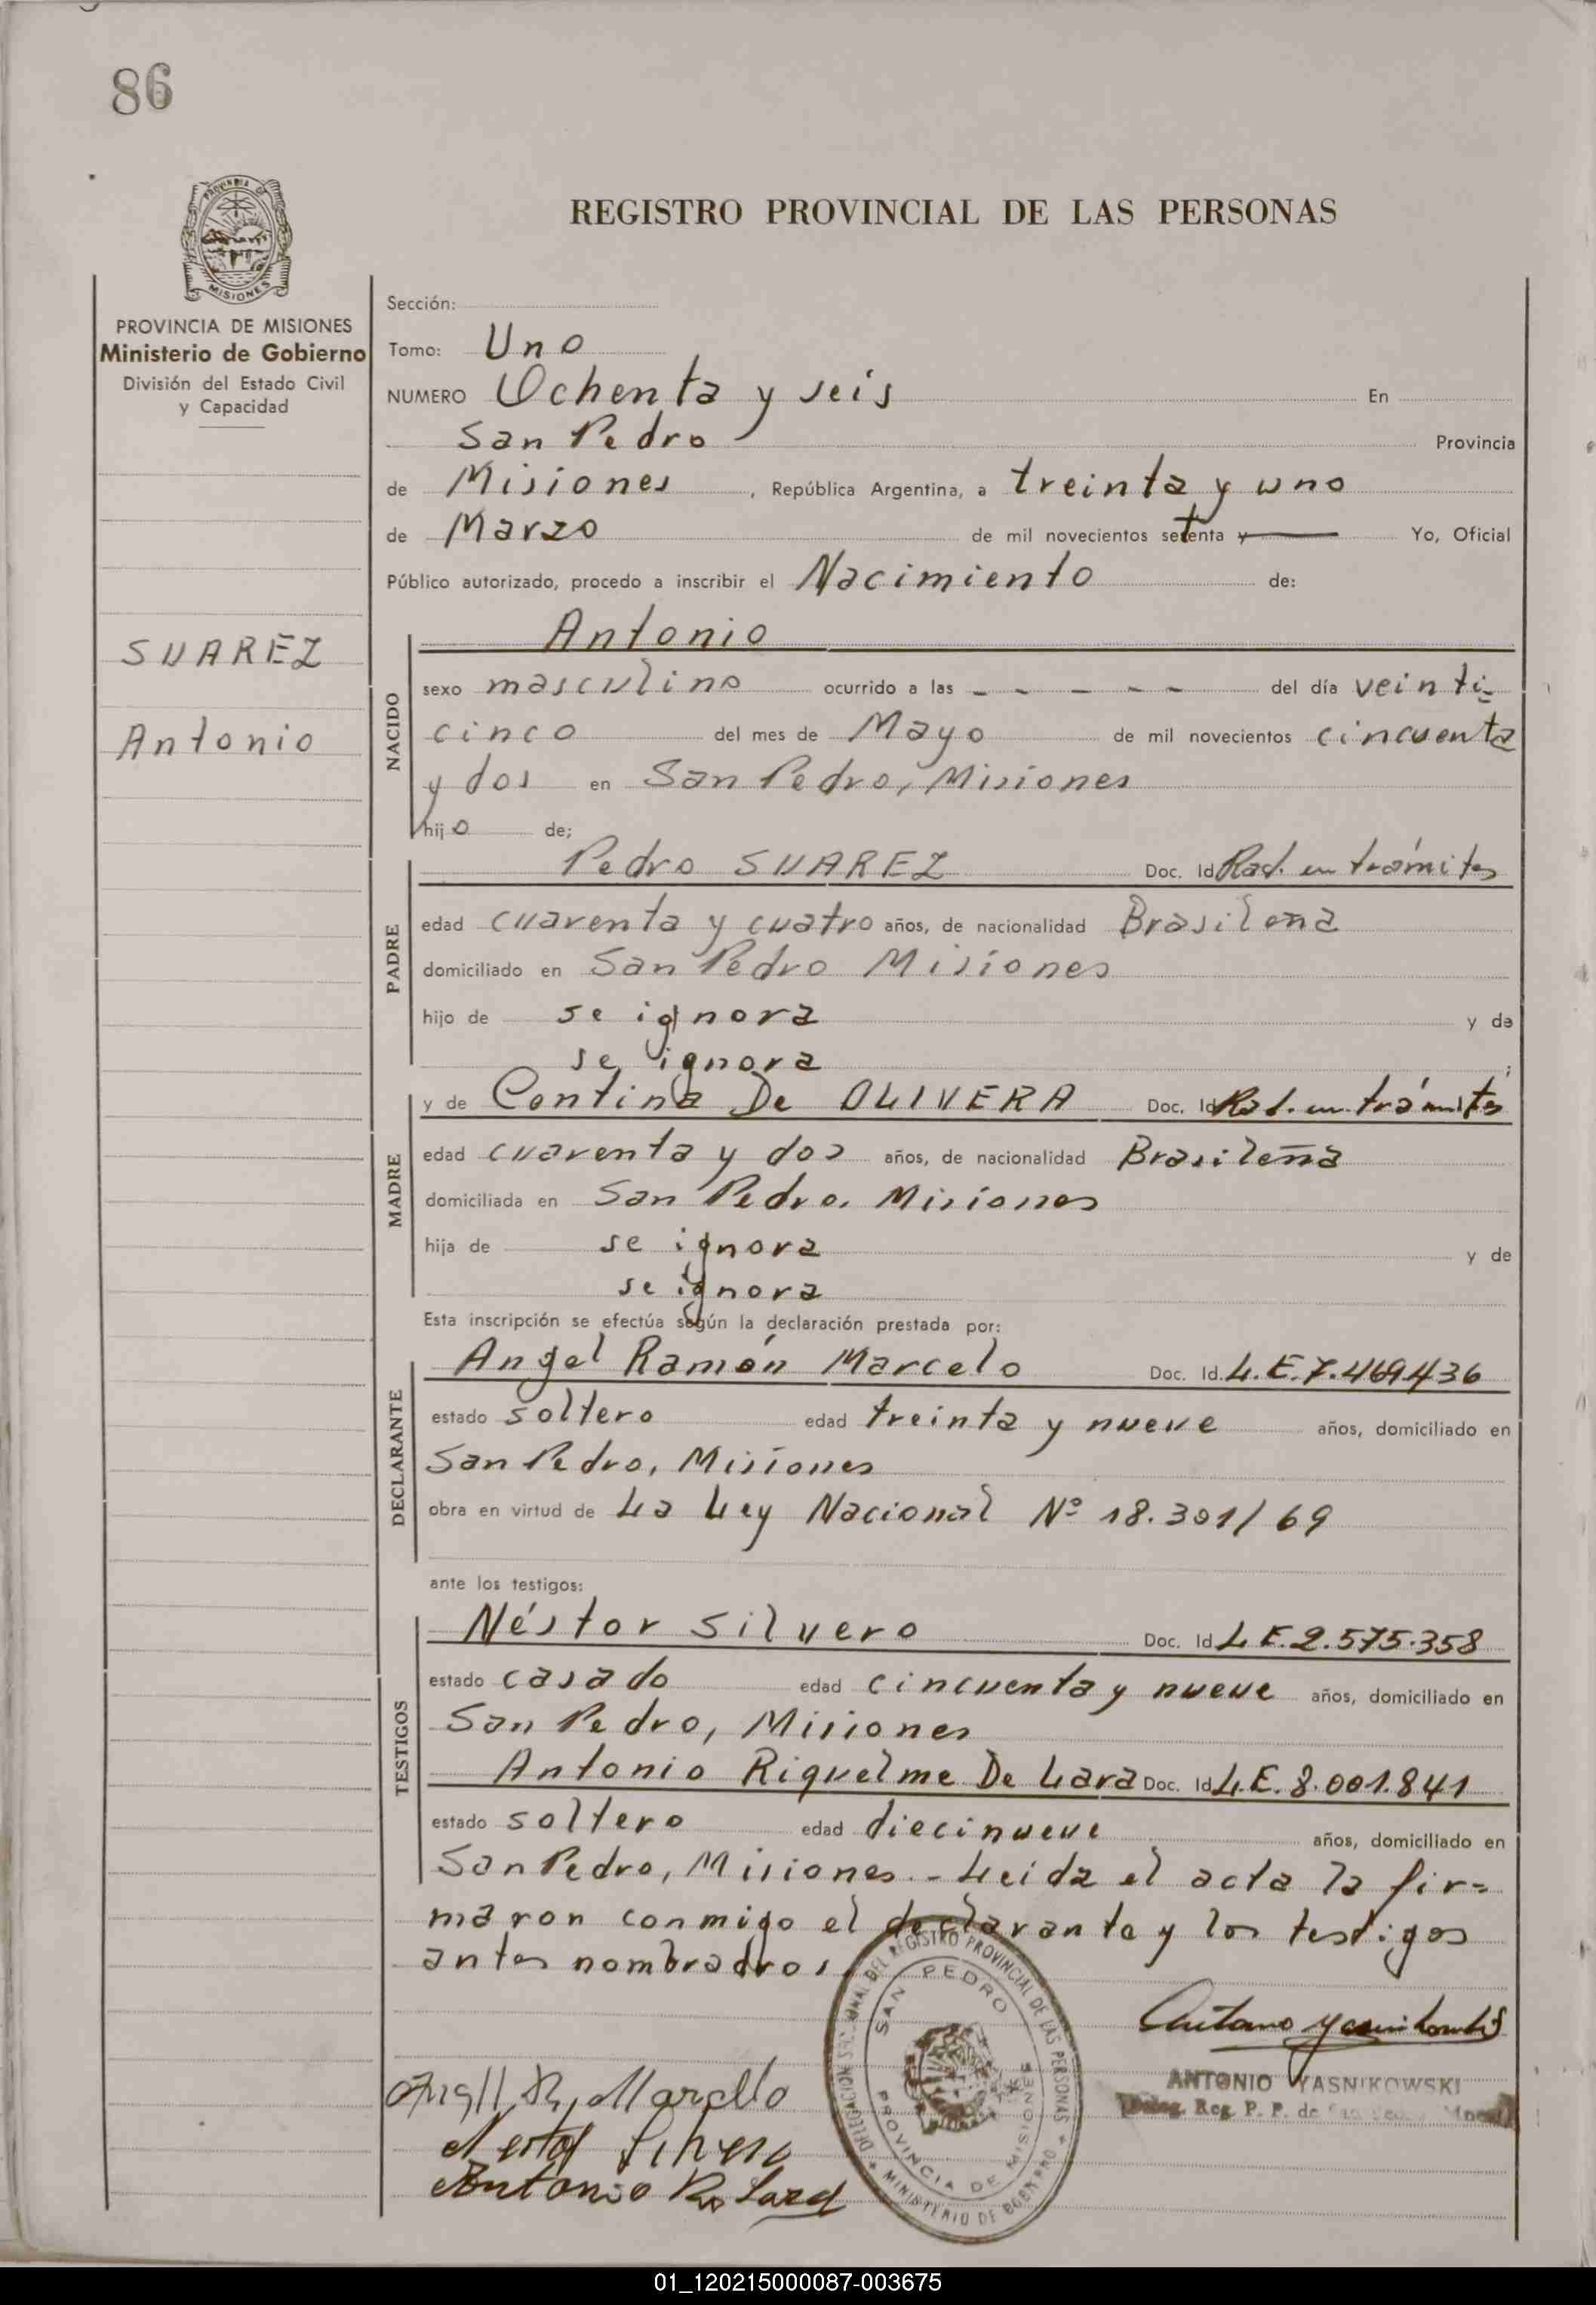 86
REGISTRO PROVINCIAL DE LAS PERSONAS
PROVINCIA DE MISIONES
Ministerio de Gobierno
División del Estado Civil
y Capacidad
SUAREZ
Antonio
Sección:
Tomo: Uno
NUMERO Ochenta y seis En
San Pedro Provincia
de Misiones, República Argentina, a treinta y uno
de Marzo de mil novecientos setenta y Yo, Oficial
Público autorizado, procedo a inscribir el Nacimiento de:
NACIDO
Antonio
sexo masculino ocurrido a las - - - - - del día veinti=
cinco del mes de Mayo de mil novecientos cincuenta
y dos en San Pedro, Misiones
hijo de;
PADRE
Pedro SUAREZ Doc. Id Rad. en trámites
edad cuarenta y cuatro años, de nacionalidad Brasileña
domiciliado en San Pedro Misiones
hijo de se ignora y de
se ignora ;
MADRE
y de Contina De OLIVERA Doc. Id Rad. en trámites
edad cuarenta y dos años, de nacionalidad Brasileña
domiciliada en San Pedro. Misiones
hija de se ignora y de
se ignora
Esta inscripción se efectúa según la declaración prestada por:
DECLARANTE
Angel Ramón Marcelo Doc. Id. L.E.7.469.436
estado soltero edad treinta y nueve años, domiciliado en
San Pedro, Misiones
obra en virtud de La Ley Nacional Nº 18.301/69
ante los testigos:
TESTIGOS
Néstor Silvero Doc. Id L.E.2.575.358
estado casado edad cincuenta y nueve años, domiciliado en
San Pedro, Misiones
Antonio Riquelme De Lara Doc. Id L.E. 8.001.841
estado soltero edad diecinueve años, domiciliado en
San Pedro, Misiones.- Leida el acta la fir=
maron conmigo el declarante y los testigos
antes nombrados.
DELEGACION SECCIONAL DEL REGISTRO PROVINCIAL DE LAS PERSONAS
SAN PEDRO
PROVINCIA DE MISIONES
MINISTERIO DE GOBIERNO
ANTONIO YASNIKOWSKI
Deleg. Reg. P. P. de
Angel R. Marcelo
Nestor Silvero
Antonio R. Lara
01_120215000087-003675